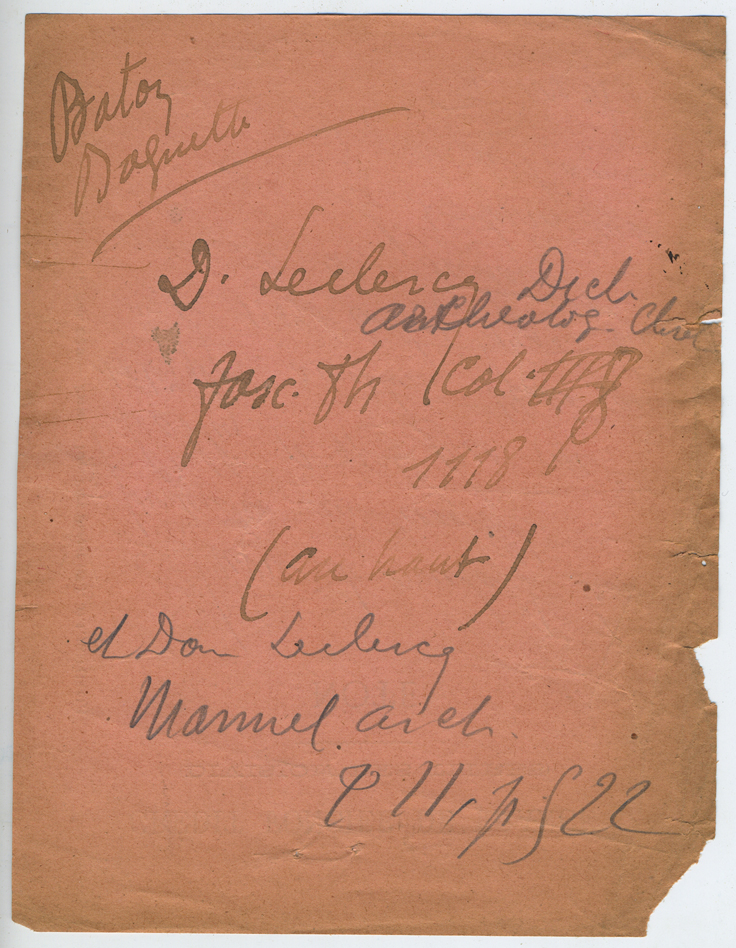 Baton
Baguette
D. Leclercq Dict.
archeolog. Chret
fasc. Th (col.
1118
(au haut)
et Dom Leclercq
Manuel arch.
T II, p 522